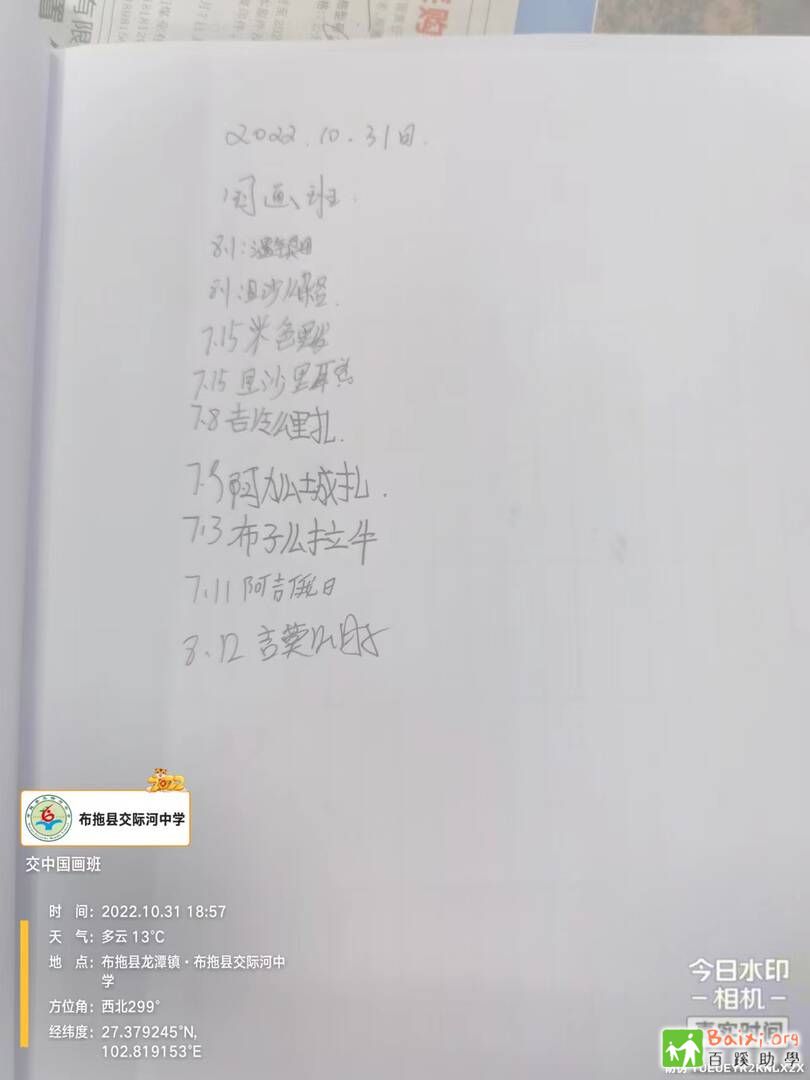 2022.10.31日.
国画班.
8.1:
8.1:且沙公
7.15米色
7.15且沙里
7.8吉冷么里扎.
7.5阿加么城扎.
7.3布子么拉牛
7.11阿吉俄日
8.12吉莫
2022
布拖县交际河中学
交中国画班
时 间：2022.10.31 18:57
天 气：多云 13℃
地 点：布拖县龙潭镇·布拖县交际河中
学
方位角：西北299°
经纬度：27.379245°N,
102.819153°E
今日水印
-相机-
真实时间
Baixi.org
百蹊助學